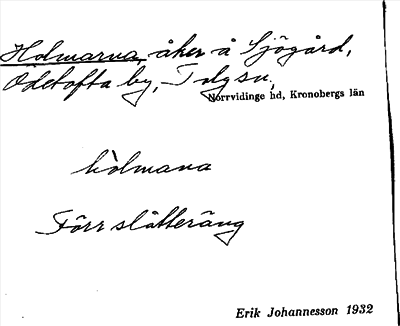 Holmarna, åker å Sjögård,
Odetofta by, Tolgsn,
Norrvidinge hd, Kronobergs län
hòlmana
Förr slåtteräng
Erik Johannesson 1932